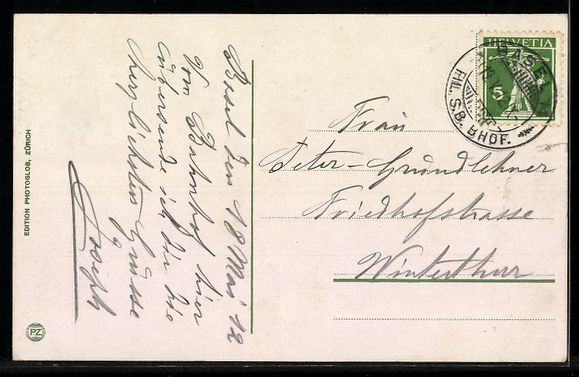 Basel den 18 Mai 12
Vom Bahnhof hier
übersende ich die
herzlichsten Grüsse
Joseph
Frau
Peter-Grundlehner
Friedhofstrasse
Winterthur
HELVETIA
5
BASEL
FIL. S.B. BHOF.
EDITION PHOTOGLOB, ZÜRICH
PZ